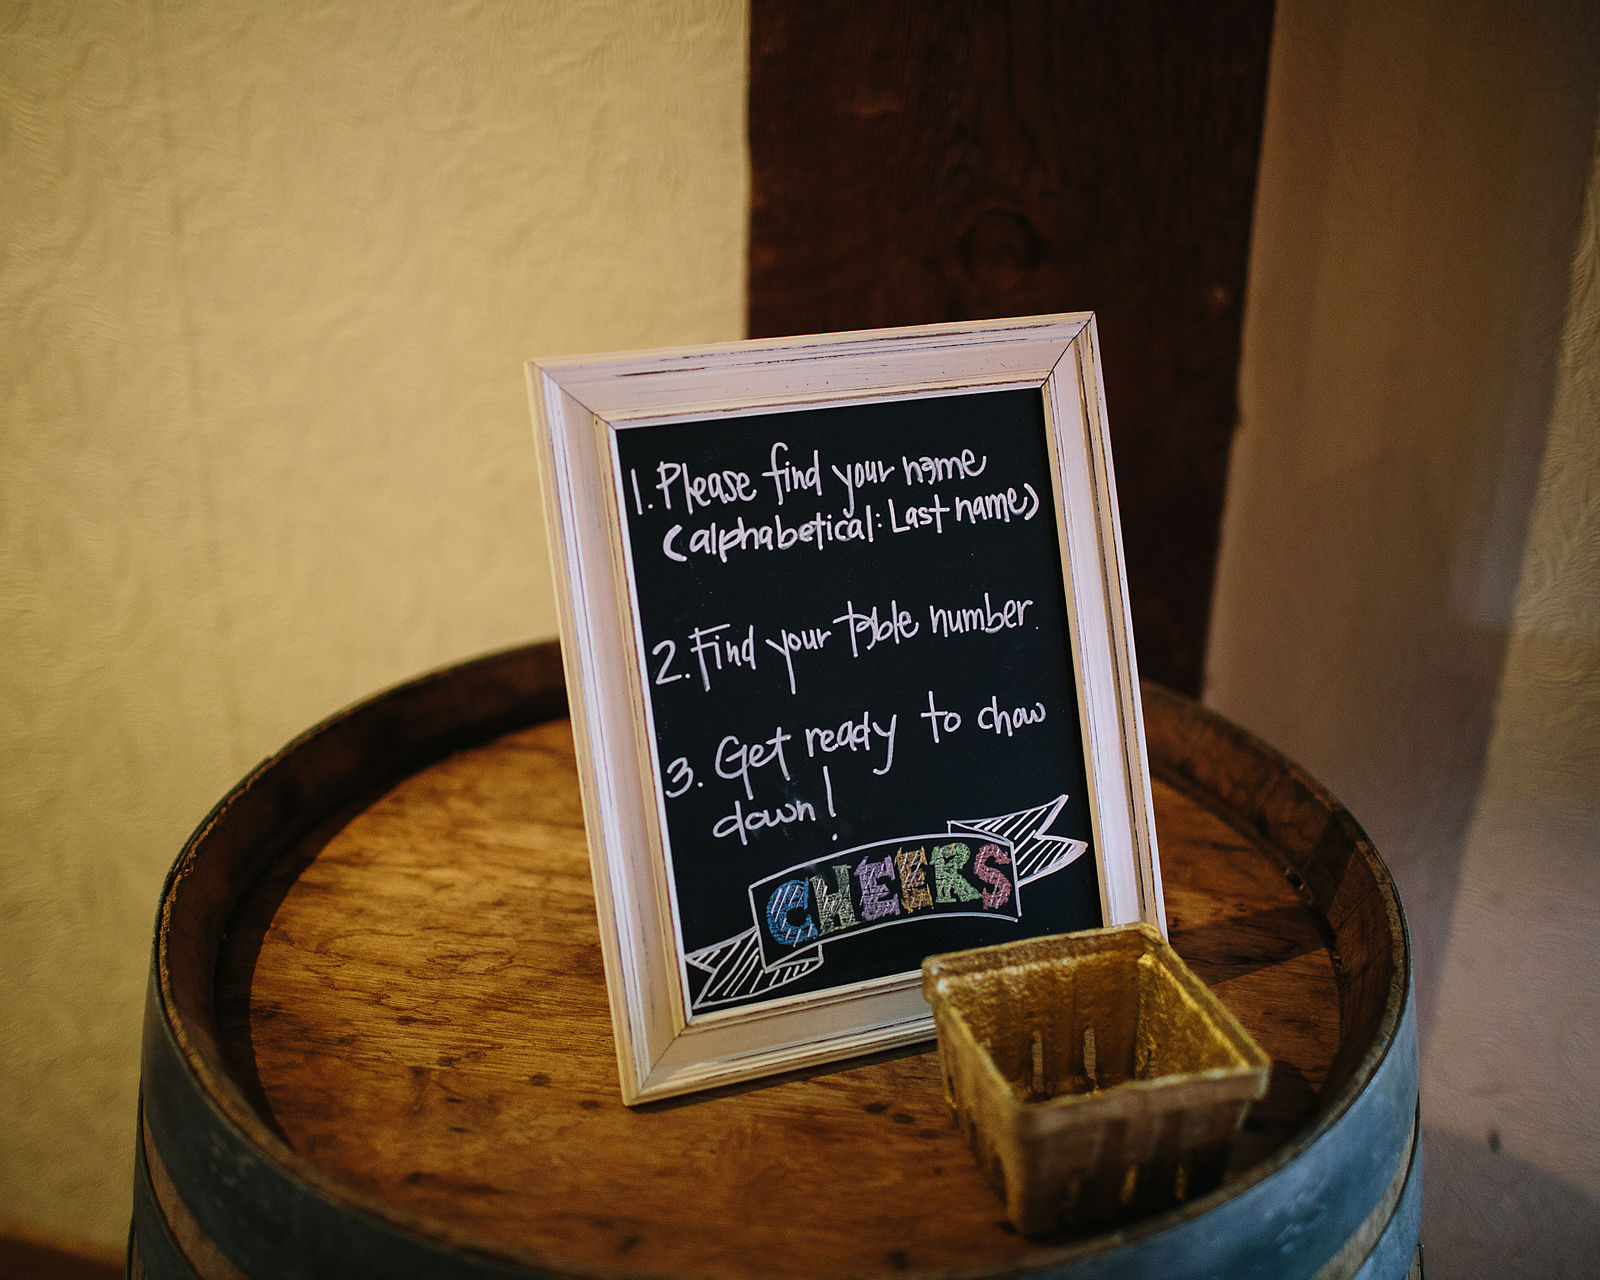 1. Please find your name
(alphabetical: Last name)
2. Find your table number.
3. Get ready to chow
down!
CHEERS